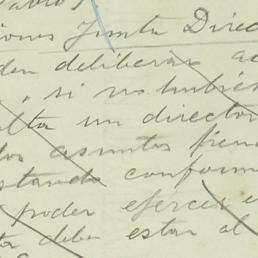 iones Junta Direc
den deliberar ac
, si no hubier
alta un director
los asuntos pend
estando conform
poder ejercer e
ta debe estar al